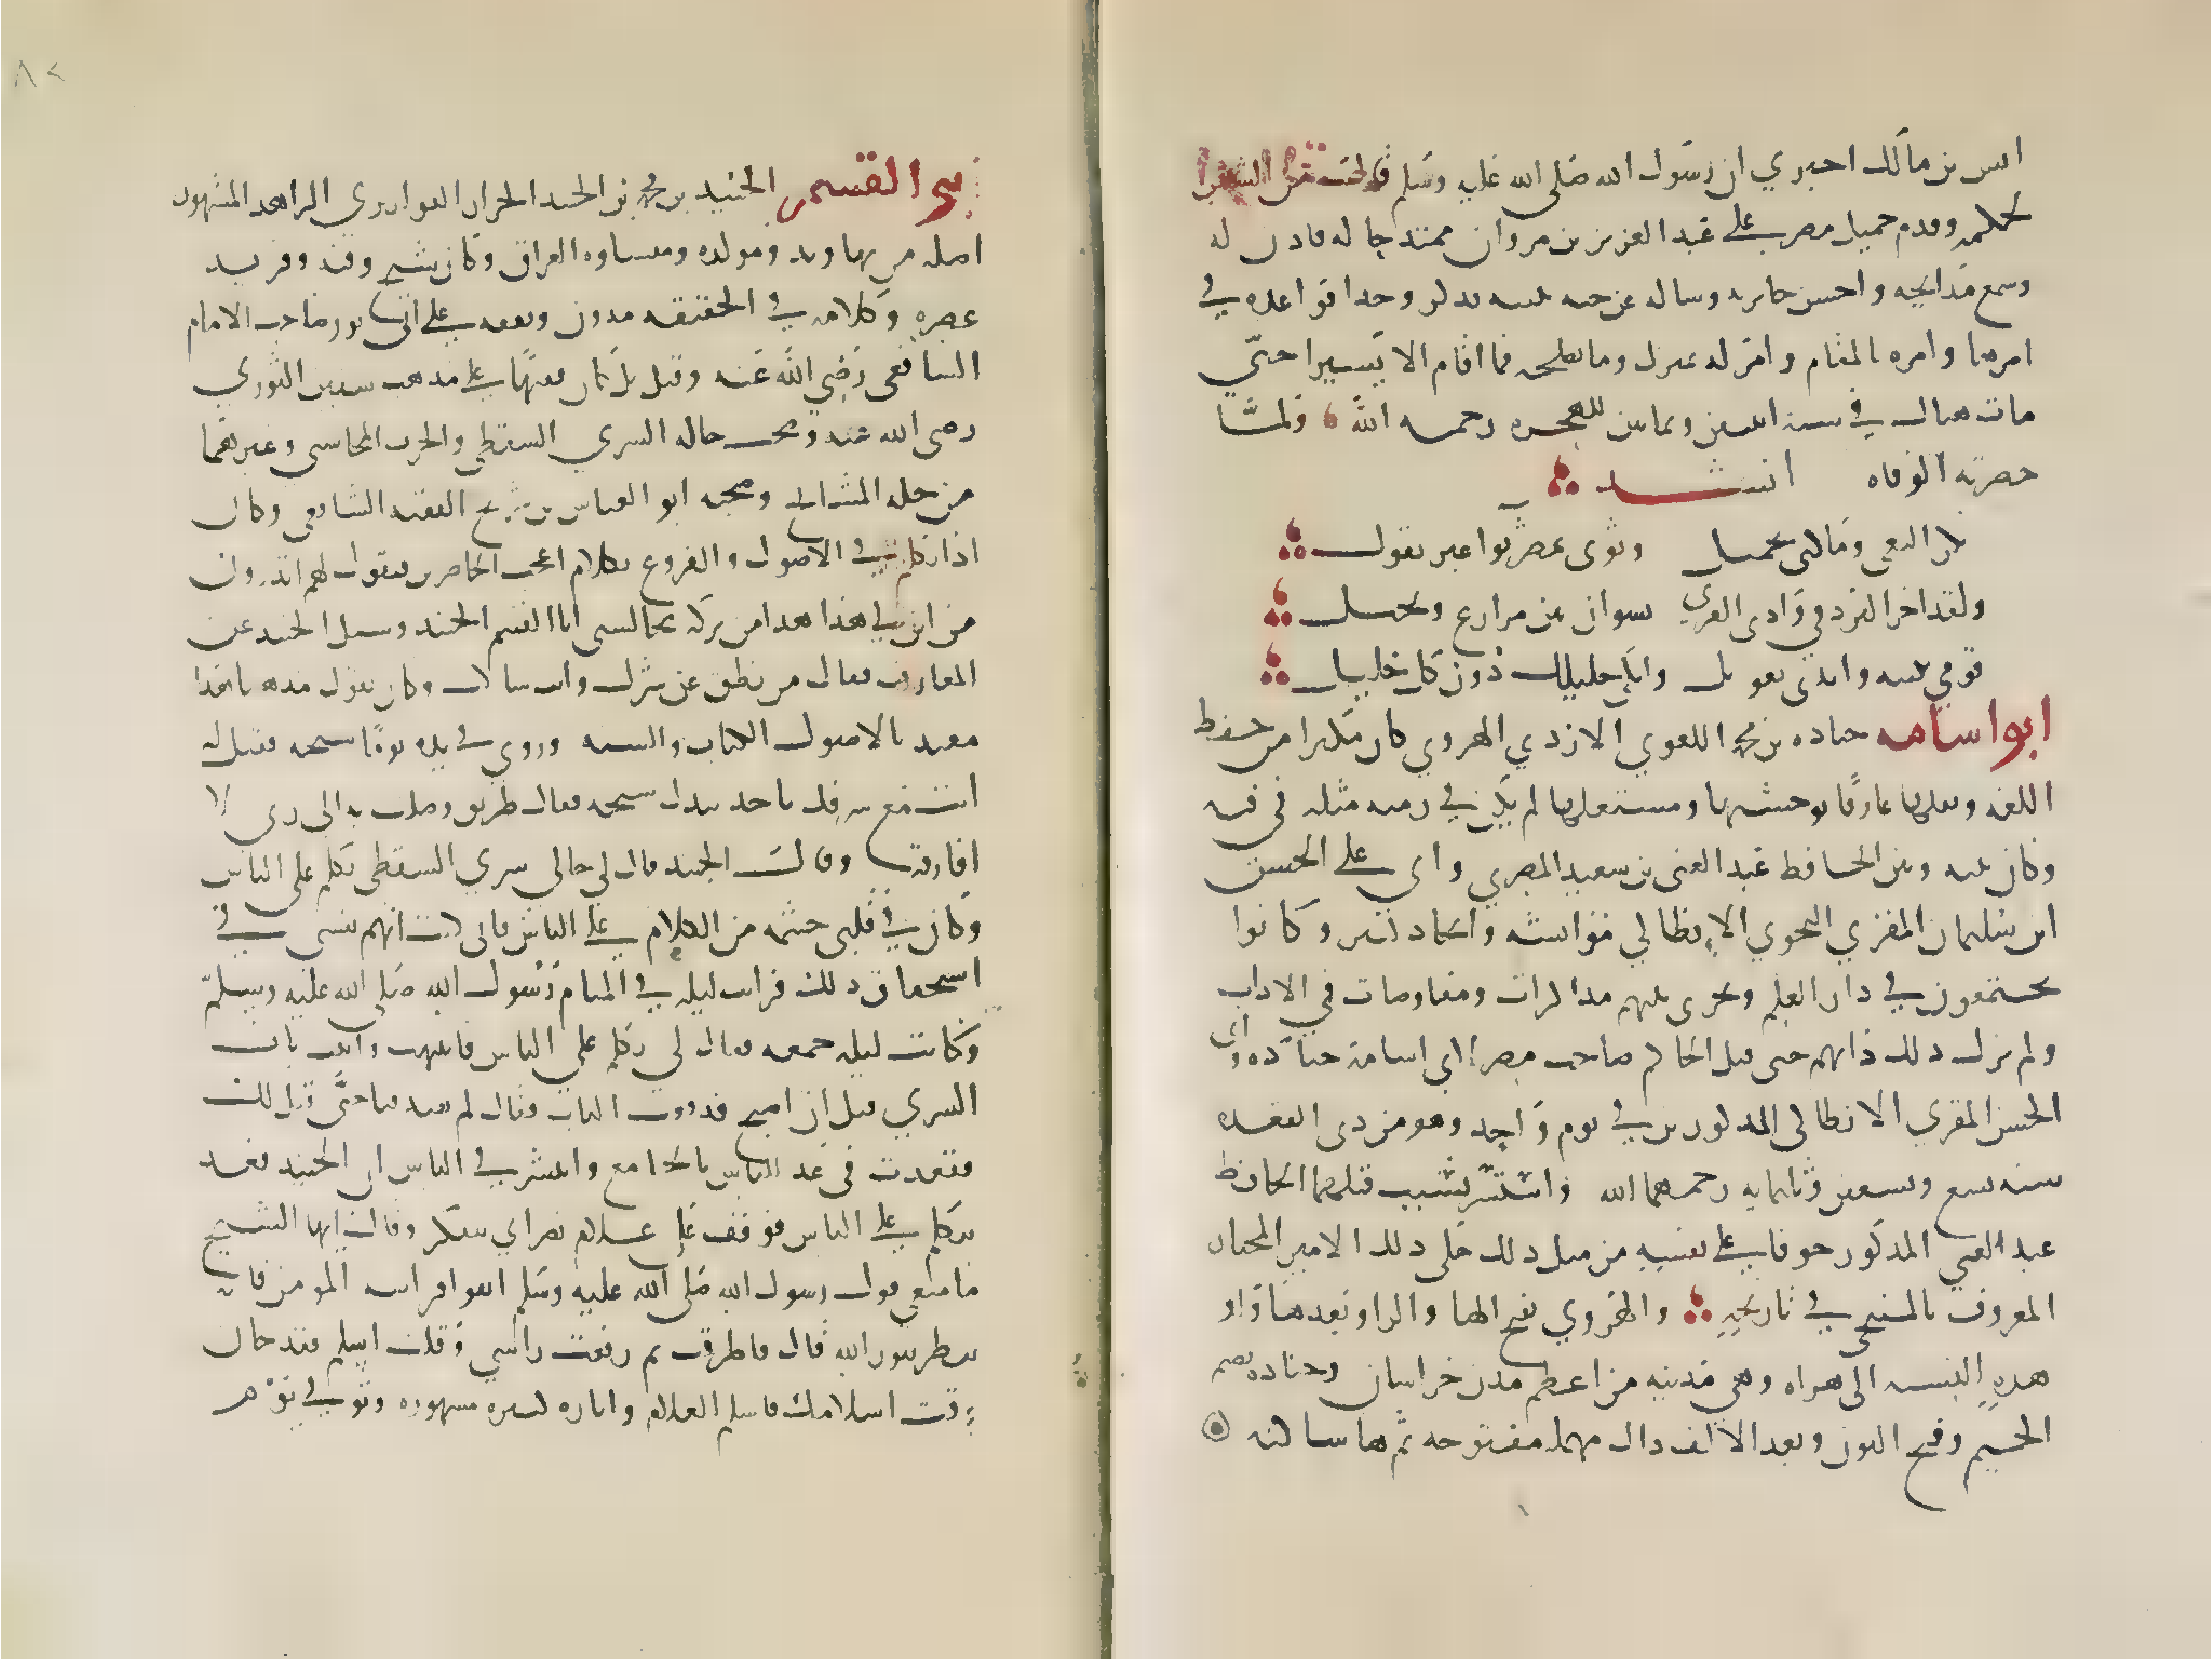 انس بن مالك اخبرني ان رسول الله صلى الله عليه وسلم قال ان من الشعر
لحكمه وقدم جميل مصر على عبد العزيز بن مروان ممتدحا له فاذن له
وسمع مدايحه واحسن جايزته وساله عن حبه بثينه فذكر وجدا فواعده في
امرها وامره بالمقام وامر له بمنزل وما يصلحه فما اقام الا يسيرا حتى
مات هناك في سنة اثنتين وثمانين للهجره رحمه الله ولما
حضرته الوفاه انشد
بكر النعي وما كنى بجميل وثوى بمصر ثوا غير قفول
ولقد اجر البرد في وادي القرى نشوان بين مزارع ونخيل
قومي بثينه واندبي بعويل وابكي خليلك دون كل خليل
ابو اسامه جناده بن محمد اللغوي الازدي الهروي كان مكثرا من حفظ
اللغه ونقلها عارفا بوحشيها ومستعملها لم يكن في زمنه مثله في فنه
وكان بينه وبين الحافظ عبد الغني بن سعيد المصري وابي علي الحسن
ابن سليمان المقري النحوي الانطاكي مؤانسه واتحاد كثير وكانوا
يجتمعون في دار العلم وتجري بينهم مذاكرات ومفاوضات في الاداب
ولم يزل ذلك دابهم حتى قتل الحاكم صاحب مصر ابي اسامة جناده وابي
الحسن المقري الانطاكي المذكورين في يوم واحد وهو من ذي القعده
سنه تسع وتسعين وثلثمايه رحمهما الله واستتر بسبب قتلهما الحافظ
عبد الغني المذكور خوفا على نفسه من مثل ذلك حكى ذلك الامير المختار
المعروف بالمسبحي في تاريخه والهروي بفتح الها والرا وبعدها واو
هذه النسبه الى هراه وهي مدينه من اعظم مدن خراسان وجناده بضم
الجيم وفتح النون وبعد الالف دال مهمله مفتوحه ثم ها ساكنه
٨٢
ابو القسم الجنيد بن محمد بن الجنيد الخزاز القواريري الزاهد المشهور
اصله من نهاوند ومولده ومنشاوه العراق وكان شيخ وقته وفريد
عصره وكلامه في الحقيقه مدون وتفقه على ابي ثور صاحب الامام
الشافعي رضي الله عنه وقيل بل كان فقيها على مذهب سفين الثوري
رضي الله عنه وصحب خاله السري السقطي والحرث المحاسبي وغيرهما
من جله المشايخ وصحبه ابو العباس بن سريج الفقيه الشافعي وكان
اذا تكلم في الاصول والفروع بكلام اعجب الحاضرين فيقول لهم اتدرون
من اين لي هذا هذا من بركه مجالستي ابا القسم الجنيد وسيل الجنيد عن
العارف فقال من نطق عن سرك وانت ساكت وكان يقول مذهبنا هذا
مقيد بالاصول الكتاب والسنه وروي في يده يوما سبحه فقيل له
انت مع شرفك تاخذ بيدك سبحه فقال طريق وصلت به الى ربي لا
افارقه وقال الجنيد قال لي خالي سري السقطي تكلم على الناس
وكان في قلبي حشمه من الكلام على الناس فاني كنت اتهم نفسي في
استحقاق ذلك فرايت ليله في المنام رسول الله صلى الله عليه وسلم
وكانت ليله جمعه فقال لي تكلم على الناس فانتبهت واتيت باب
السري قبل ان اصبح فدققت الباب فقال لم تصدقنا حتى قيل لك
فقعدت في غد للناس بالجامع وانتشر في الناس ان الجنيد قعد
يتكلم على الناس فوقف علي غلام نصراني متنكر وقال ايها الشيخ
ما معنى قول رسول الله صلى الله عليه وسلم اتقوا فراسه المومن فانه
ينظر بنور الله قال فاطرقت ثم رفعت راسي وقلت اسلم فقد حان
وقت اسلامك فاسلم الغلام واثاره كثيره مشهوره وتوفي يوم